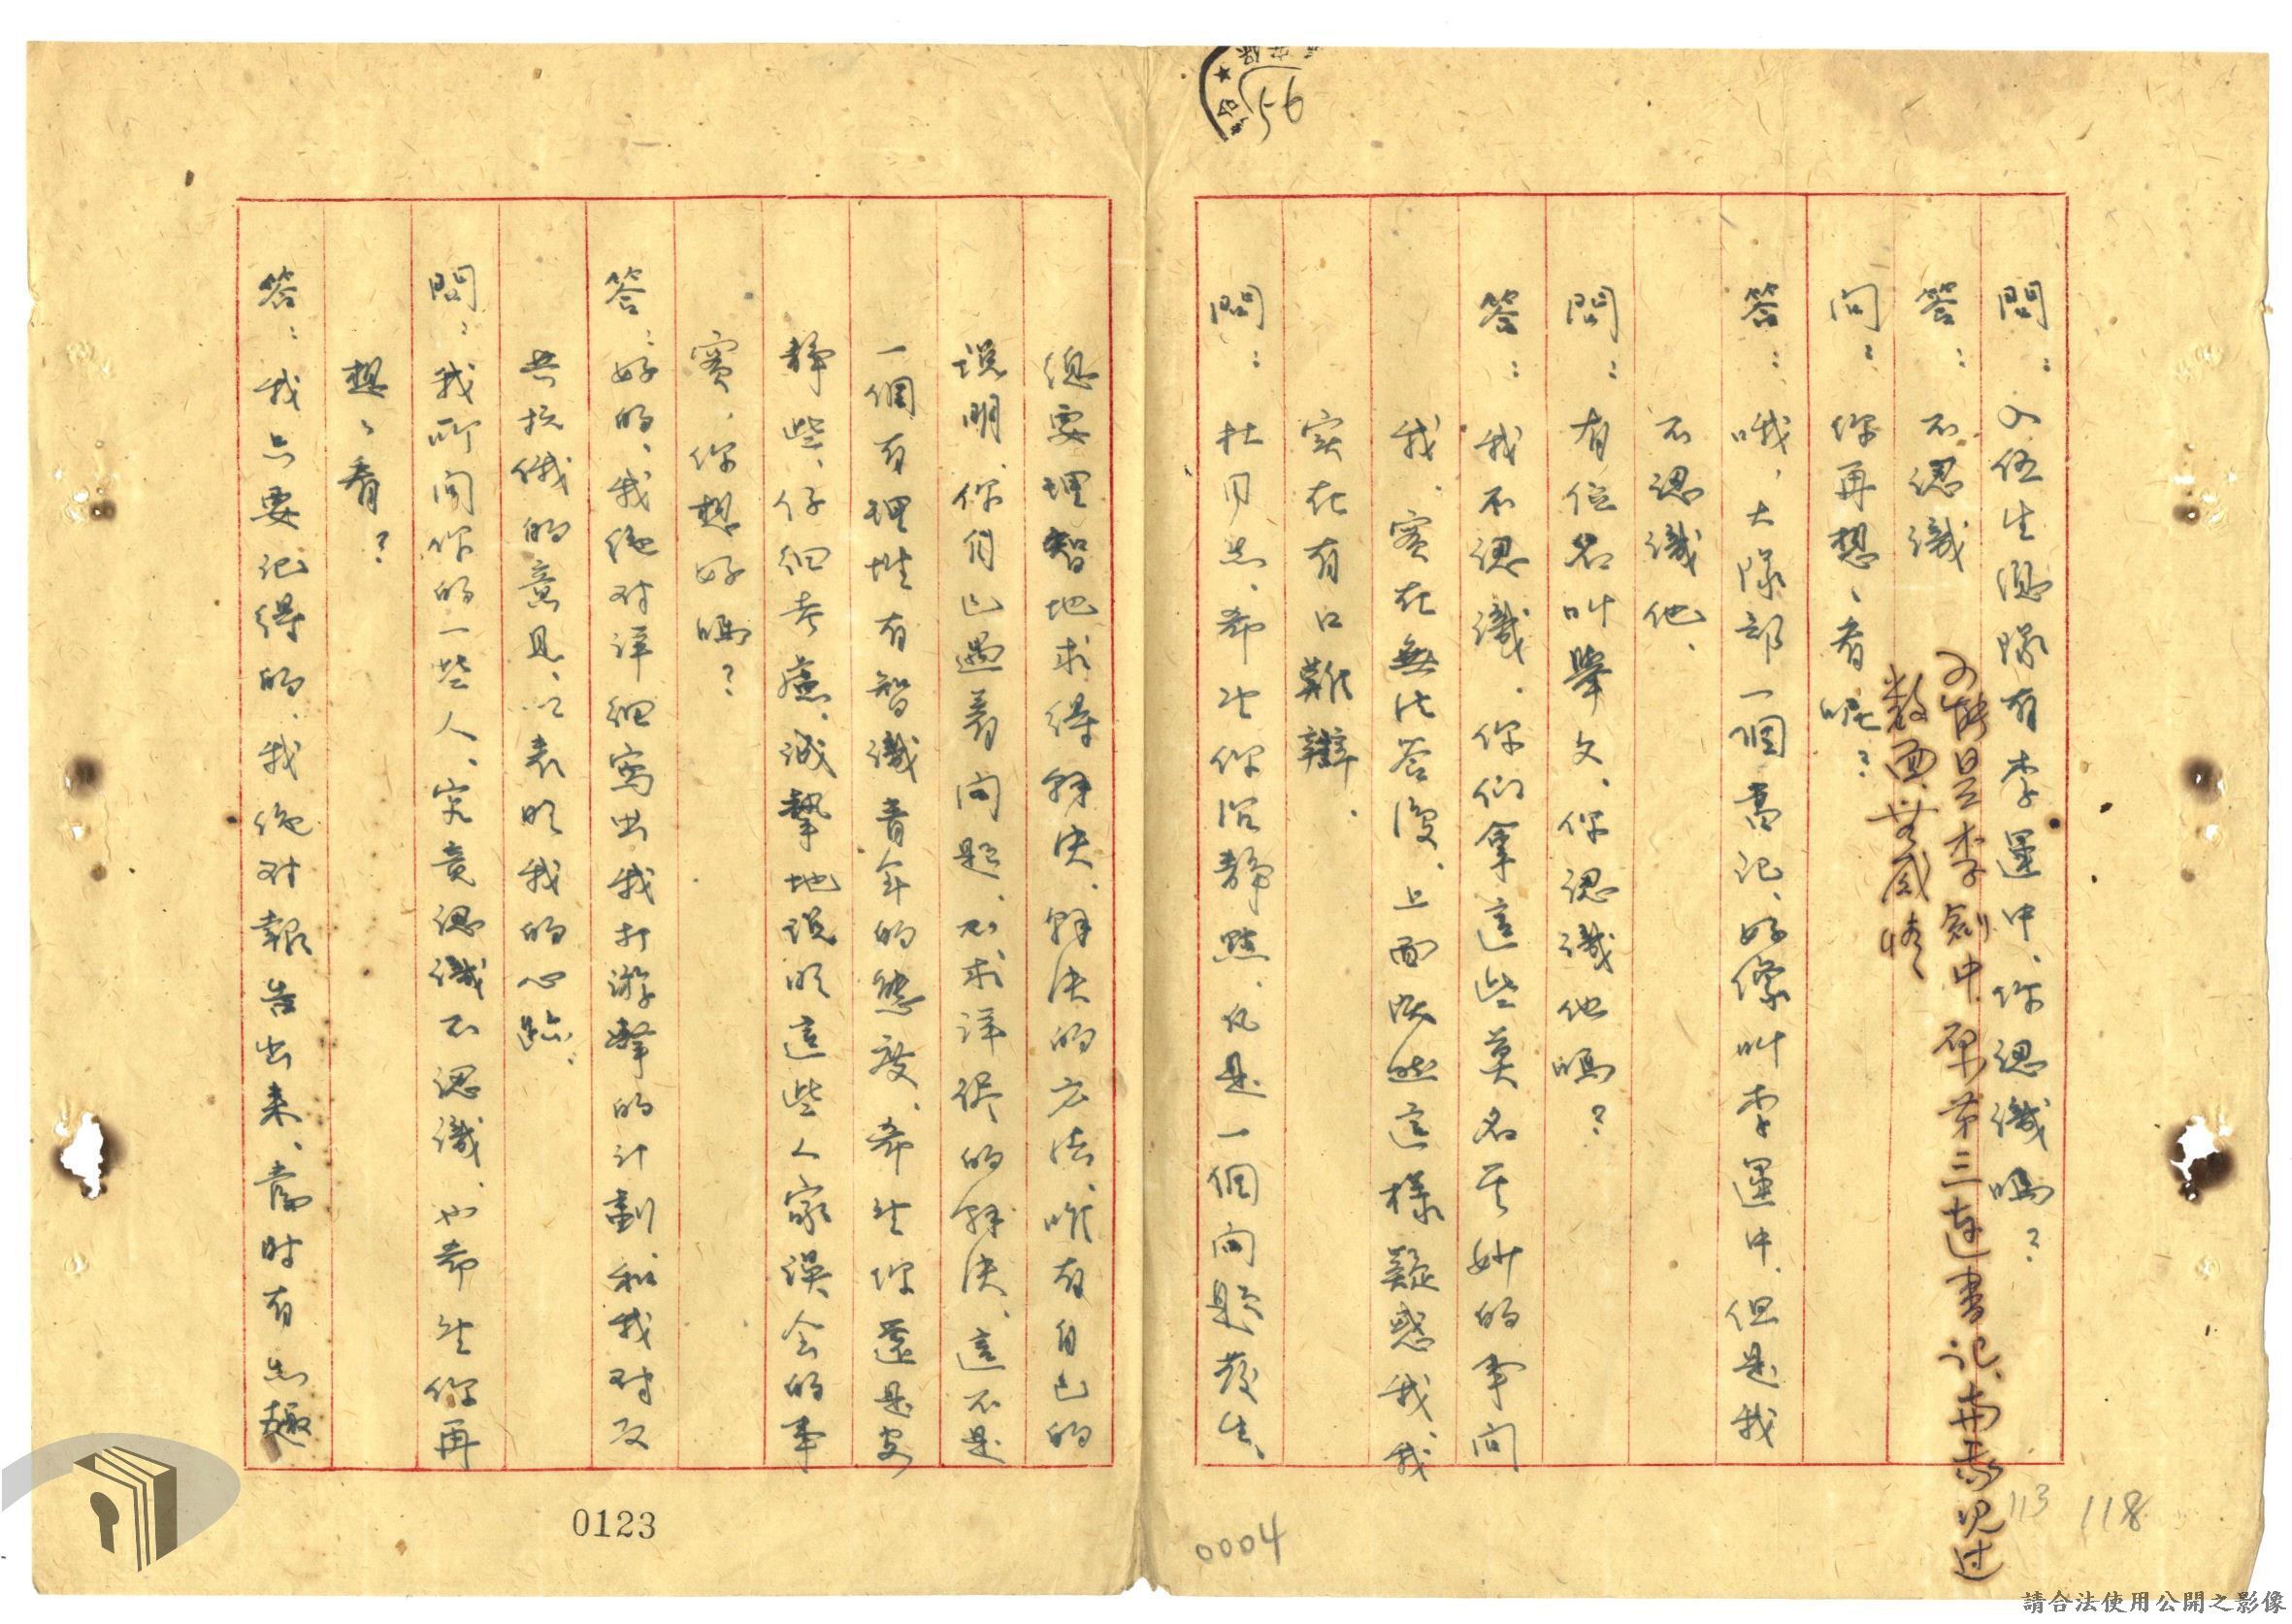 56
問：入伍生總隊有李運中、你認識嗎？
答：不認識
可能是李劍中、砲第三連書記、曹恭見过
数面、無感情
问：你再想、看呢？
答：哦，大隊部一個書記、好像叫李運中、但是我
不認識他、
問：有位名叫舉文、你認識他嗎？
答：我不認識．你们拿這些莫名其妙的事问
我．實在無比答復、上面既然這樣疑惑我、我
实在有口難辯．
問：杜同志、希望你沉静點、凡是一個问題發生、
總要理智地求得解決．解決的方法、唯有自己的
説明．你自己遇着问題、不求詳侭的解決、這不是
一個有理性有智識青年的態度、希望你還是安
静些、仔细考慮、誠摯地説明這些人家误会的事
實、你想好嗎？
答：好的、我絶对詳細寫出我打游擊的计劃、和我对反
共抗俄的意見、以表明我的心跡．
問：我所问你的一些人、究竟認識不認識、也希望你再
想、看？
答：我只要记得的、我絶对報告出来、當时有志趣
0123
0004
113
118
請合法使用公開之影像